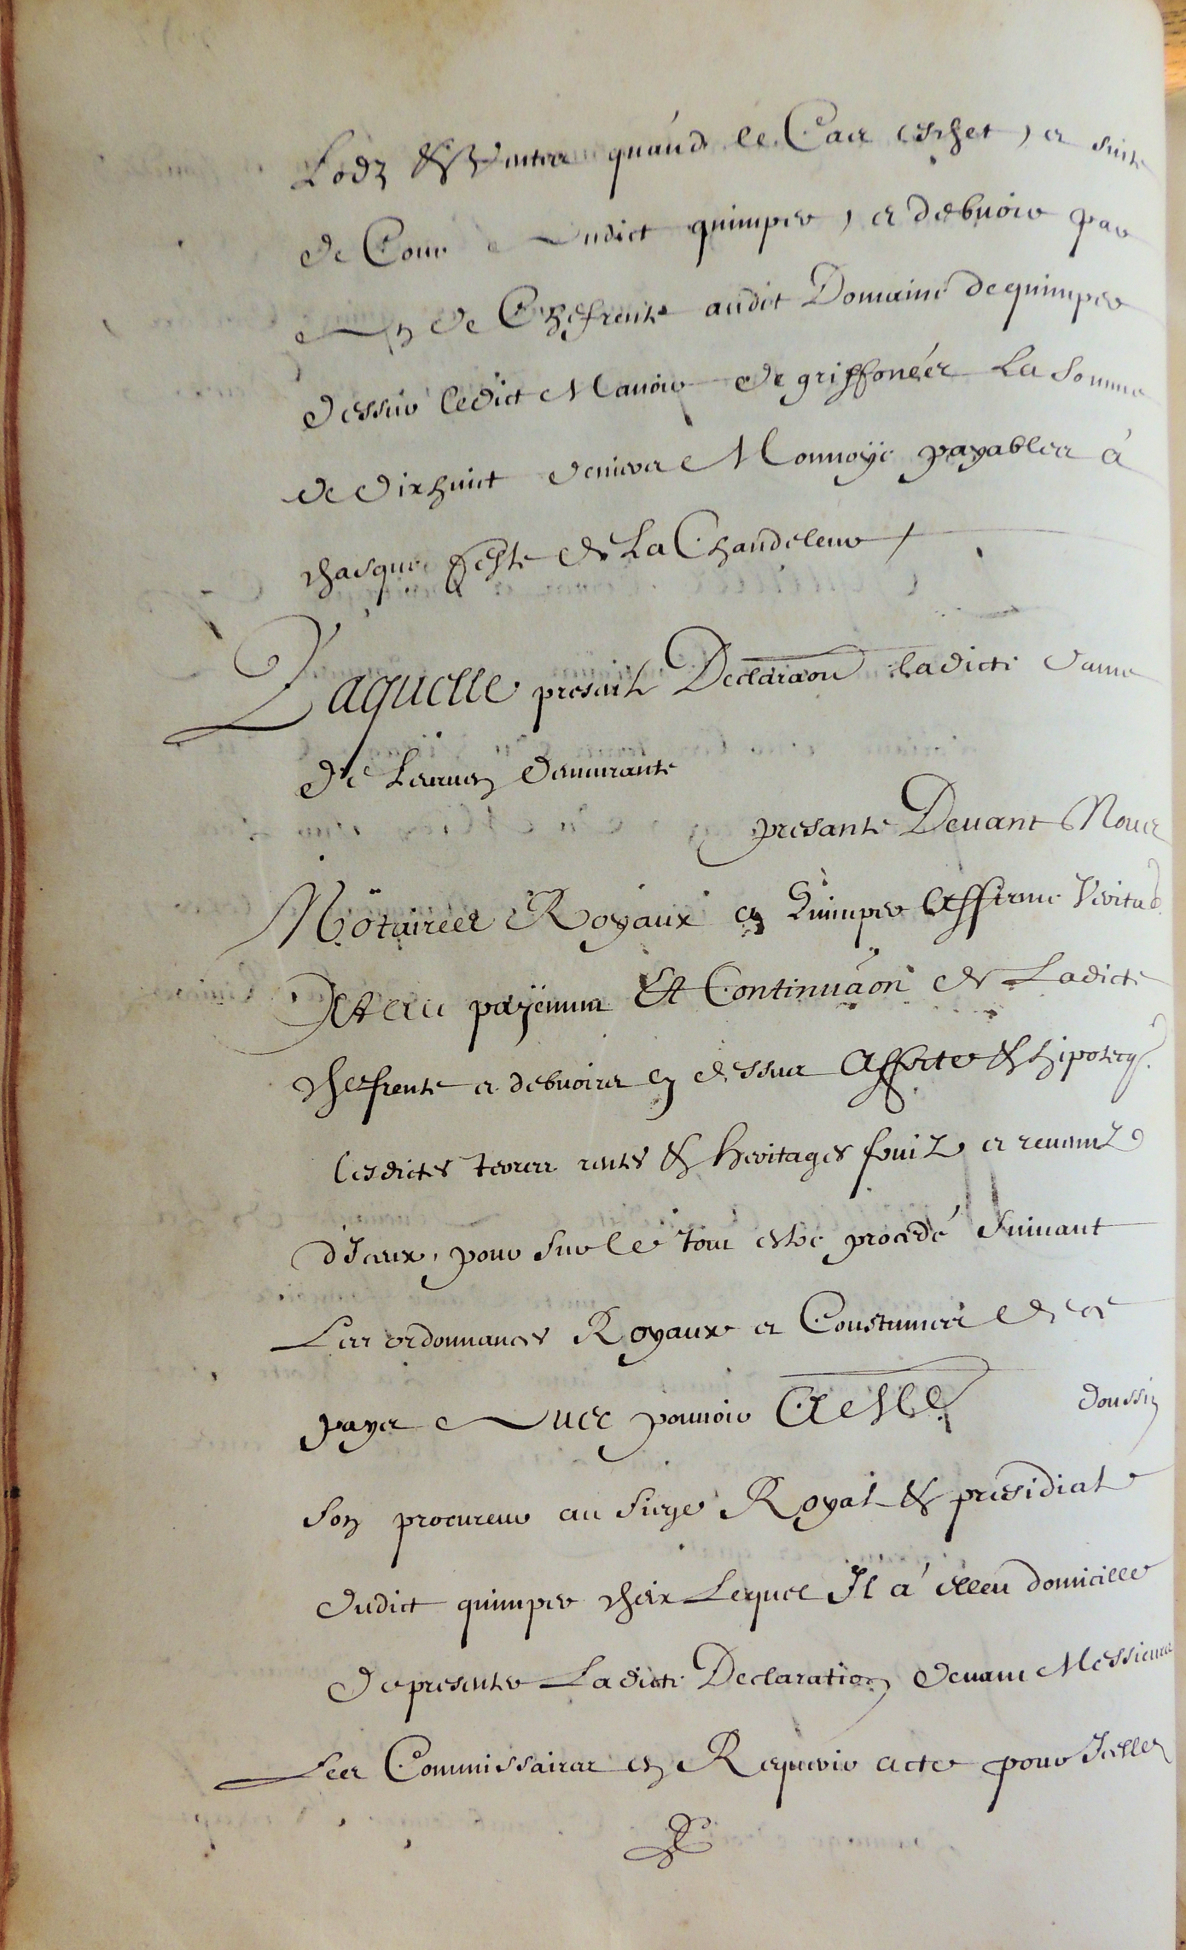 Lodz & Ventes quand le Cas eschet, et suite
de Cour dudict quimper, et debuoir par
an de Cheffrente audit Domaine de quimper
dessus ledict Manoir de griffonéz La Somme
de dixhuict deniers Monnoye payables à
chasque feste de La Chandeleur /
Laquelle presente Declaraõn ladicte dame
de demurante
presante Devant Nous
Nótaires Royaux de Quimper Affirme Veritab.
Et au payement Et Continuaõn de Ladicte
cheffrente et debuoirs cy dessus Affecte & hipotecq.
lesdictes terres rentes & heritages fruiz et reuenuz
d'Iceux, pour sur le tout estre procedé suiuant
Les ordonnances Royaux et Coustumes de ce
payes Auec pouuoir A Me doussin
son procureur au siege Royal & presidial
dudict quimper cheix Lequel Il a esleu domicille
de presenter Ladicte Declaration deuant Messieurs
Les Commissaires et Requerir acte pour Icelle